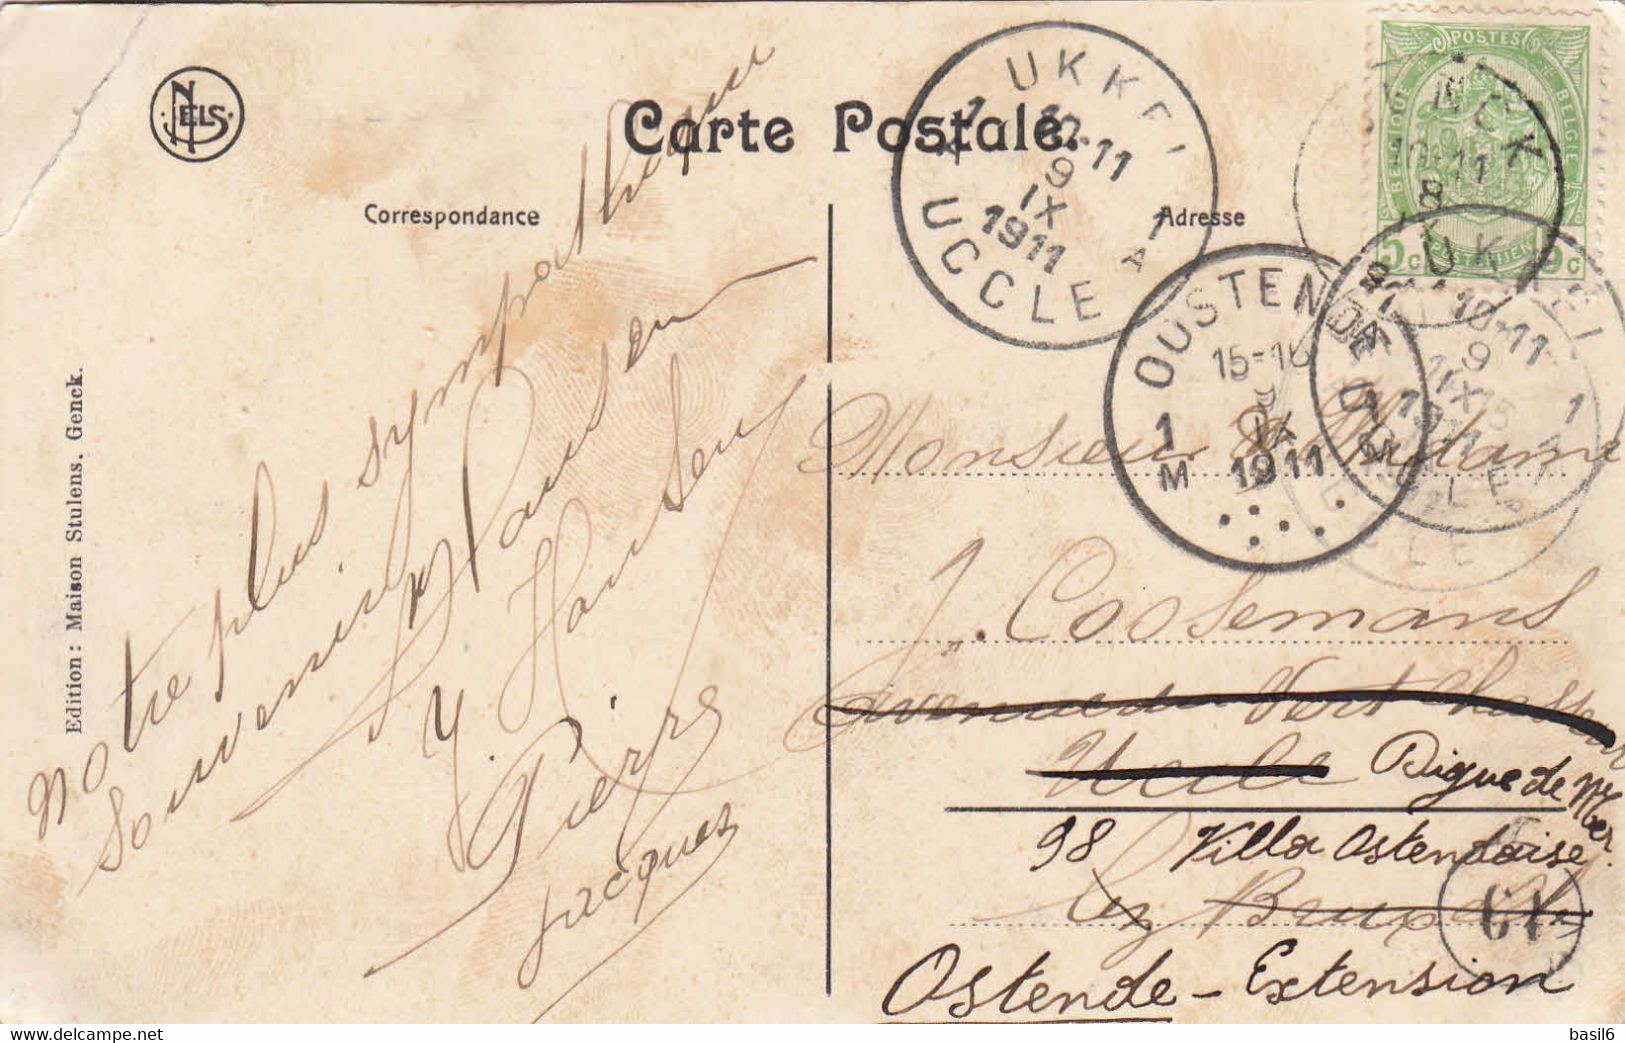 NELS
Carte Postale.
Correspondance
Adresse
Edition: Maison Stulens. Genck.
Notre plus sympathique
souvenir
Y. Hansen
Pierre
Jacques
POSTES
BELGIQUE BELGIE
5c
UKKEL
1 1
10-11
9
IX
1911
A
UCCLE
OOSTENDE
15-16
IX
1911
1
M
UKKEL
10-11
9
IX
1
10-11
8
Monsieur & Madame
J. Coosemans
avenue du Vert Chasseur
Uccle Digue de Mer
98 Villa Ostendaise
lez Bruxelles
Ostende - Extension
basil6